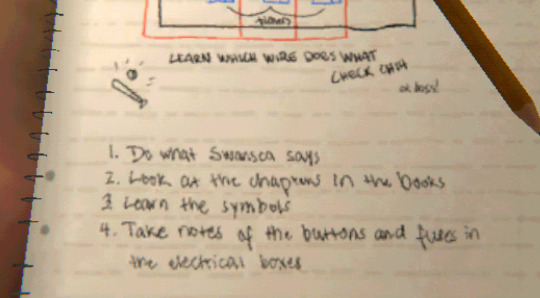 flowers
LEARN WHICH WIRE DOES WHAT
CHECK CH4
or loss!
1. Do what Swansea says
2. Look at the chapters in the books
3 Learn the symbols
4. Take notes of the buttons and fuses in
the electrical boxes